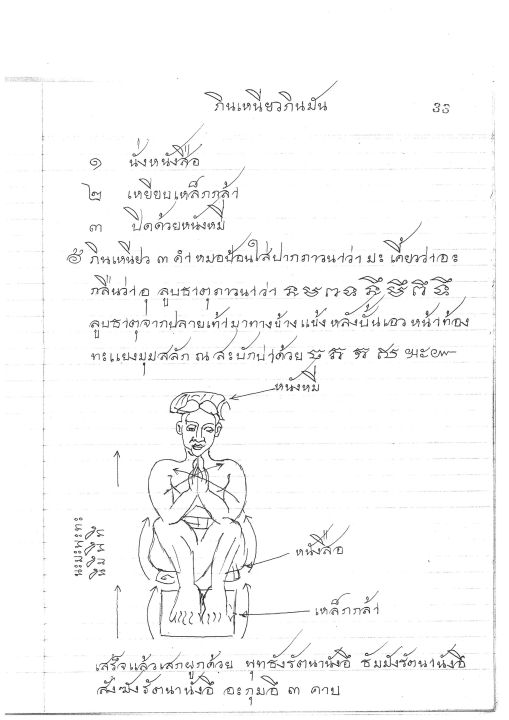 กินเหนียวกินมัน ๓๖
๑ นั่งหนังสือ
๒ เหยียบเหล็กกล้า
๓ ปิดด้วยหนังหมี
กินเหนียว ๓ คำ หมอป้อนใส่ปากภาวนาว่า มะ เคี้ยวว่า อะ
กลืนว่า อุ ลูบธาตุภาวนาว่า
ลูบธาตุจากปลายเท้ามาทางข้างแข้ง หลังบั้นเอว หน้าท้อง
ทะแยงมุมสลัก ณ สะบักบ่าด้วย
หนังหมี
หนังสือ
นะมะพะทะ
นิมิพิทิ
เหล็กกล้า
เสร็จแล้วเสกผูกด้วย พุทธังรัตนานังอิ ธัมมังรัตนานังอิ
สังฆังรัตนานังอิ อะกุมอิ ๓ คาบ